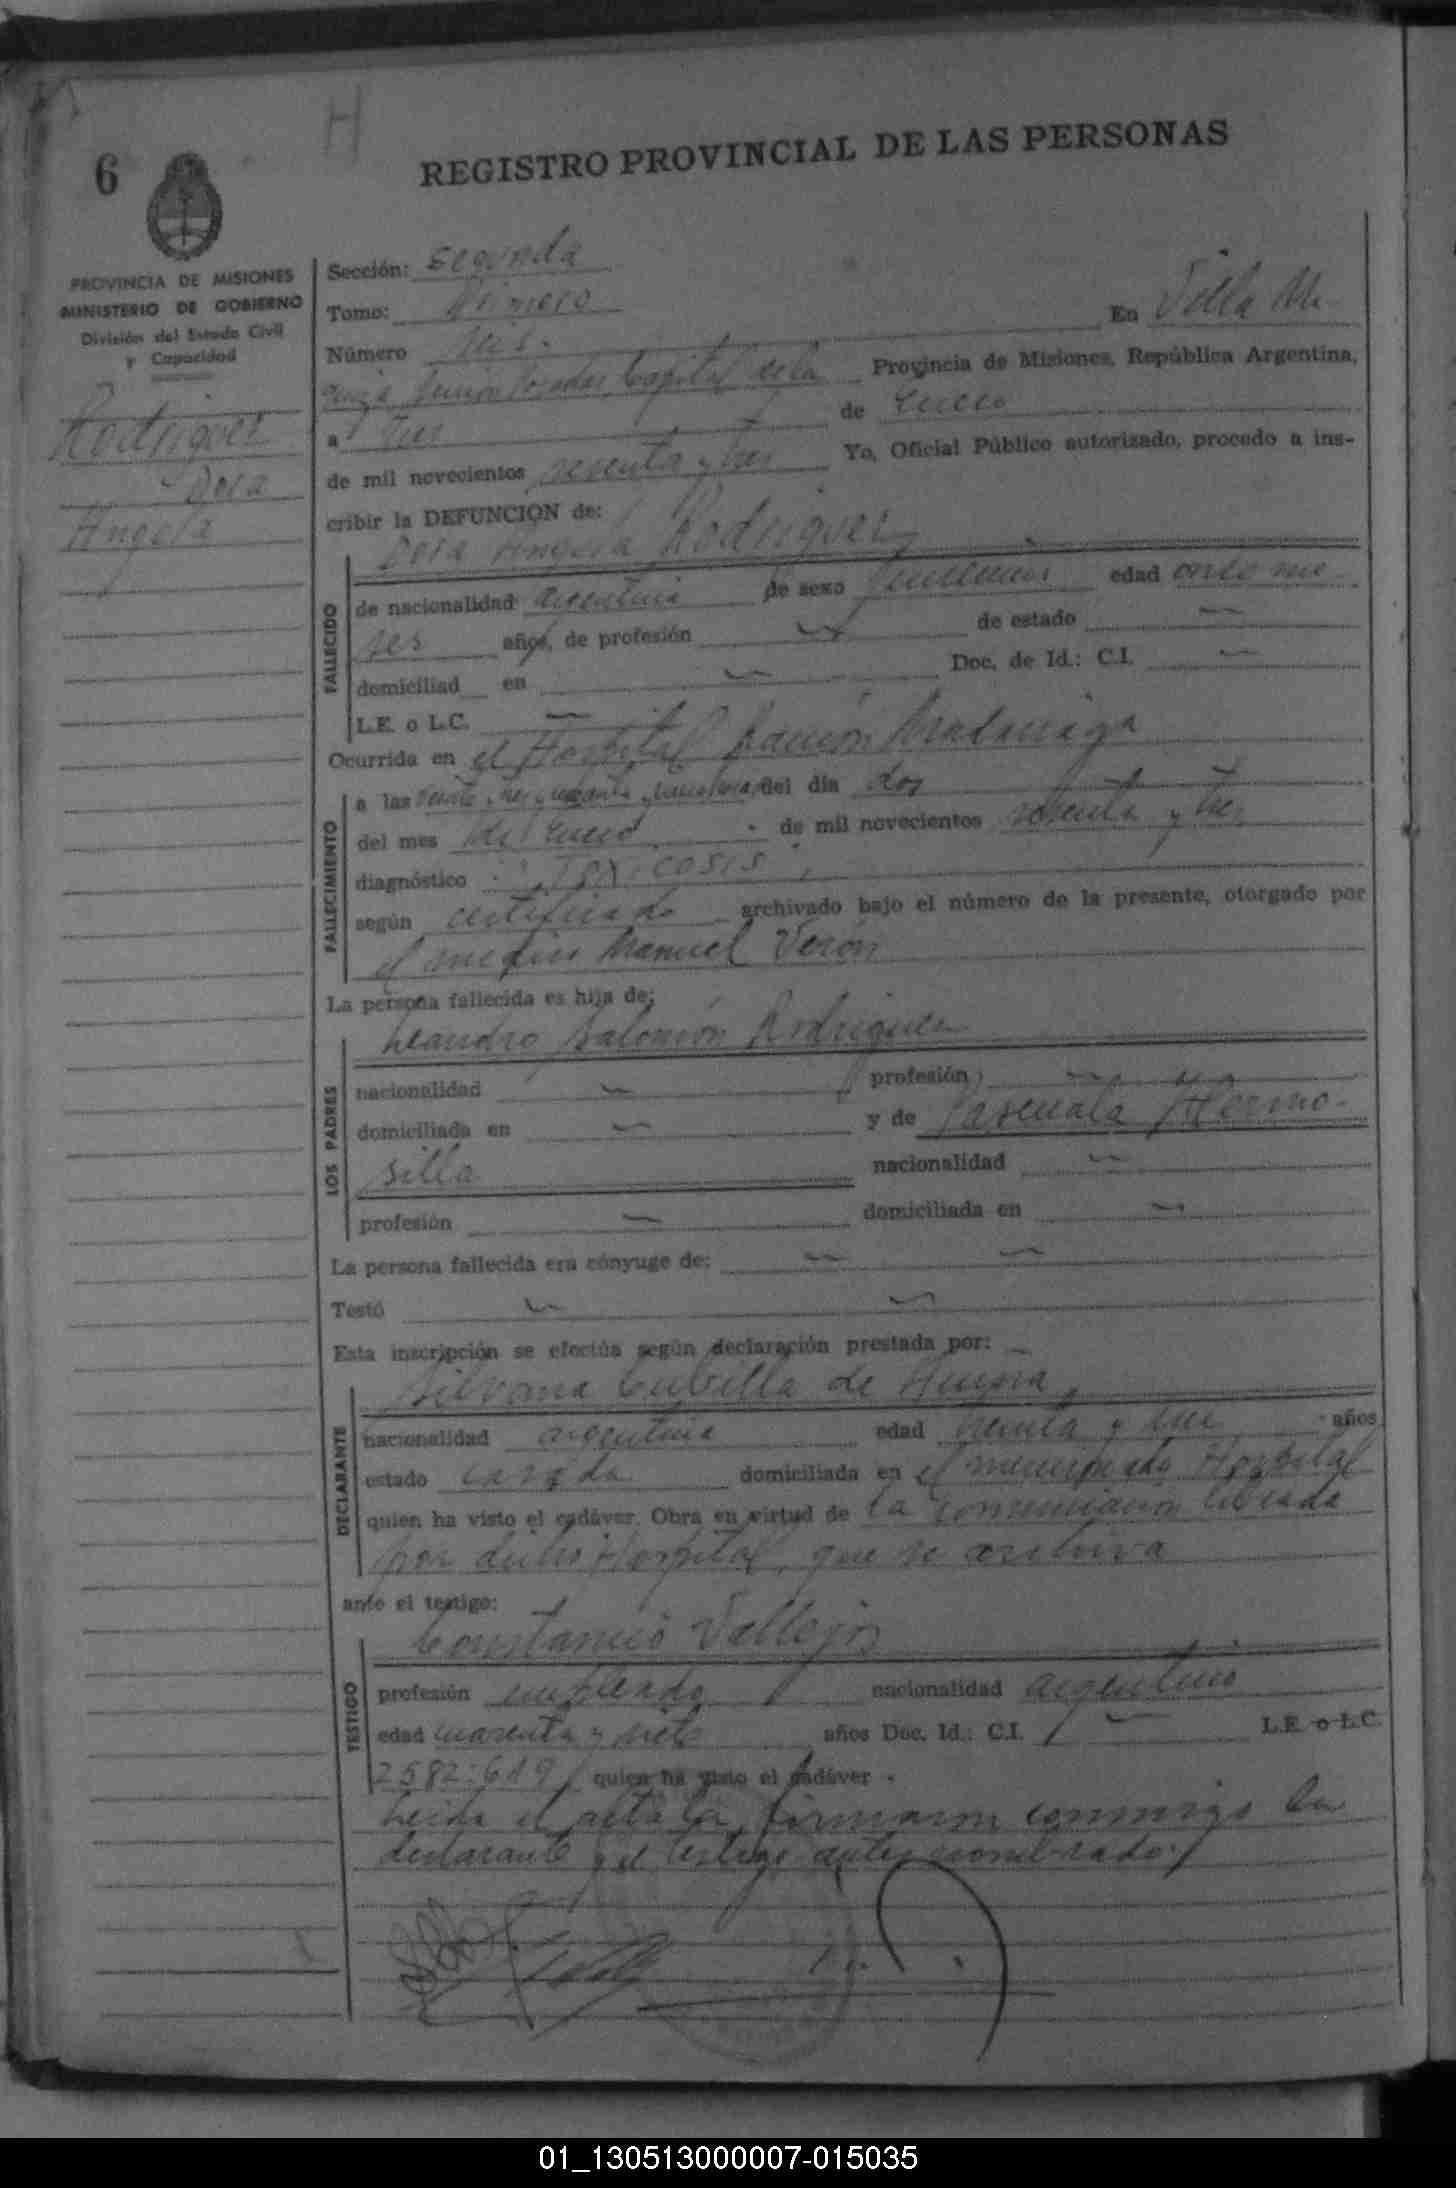 H
6
REGISTRO PROVINCIAL DE LAS PERSONAS
PROVINCIA DE MISIONES
MINISTERIO DE GOBIERNO
División del Estado Civil
y Capacidad
Rodriguez
Dora
Angela
Sección: segunda
Tomo: Primero
En Villa
Número seis.
Posadas Capital de la Provincia de Misiones, República Argentina,
a tres de Enero
de mil novecientos sesenta y tres Yo, Oficial Público autorizado, procedo a ins-
cribir la DEFUNCIÓN de:
Dora Angela Rodriguez
FALLECIDO
de nacionalidad argentina de sexo femenino edad once me
ses años, de profesión de estado
domiciliad en Doc. de Id.: C.I.
L.E. o L.C.
Ocurrida en el Hospital Ramón Madariaga
FALLECIMIENTO
a las veinte y tres y cuarenta y del día dos
del mes de Enero de mil novecientos sesenta y tres
diagnóstico TOXICOSIS
según certificado archivado bajo el número de la presente, otorgado por
el médico Manuel Verón
La persona fallecida es hija de:
Leandro Salomón Rodriguez
LOS PADRES
nacionalidad profesión
domiciliada en y de Pascuala Hermo-
silla nacionalidad
profesión domiciliada en
La persona fallecida era cónyuge de:
Testó
Esta inscripción se efectúa según declaración prestada por:
Silvana Cubilla de
DECLARANTE
nacionalidad argentina edad treinta y tres años
estado casada domiciliada en el mencionado Hospital
quien ha visto el cadáver. Obra en virtud de la comunicación librada
por dicho Hospital, que se archiva
ante el testigo:
Constancio Vallejos
TESTIGO
profesión empleado nacionalidad argentino
edad cuarenta y siete años Doc. Id.: C.I. L.E. o L.C.
2582.619 quien ha visto el cadáver.
Leida el acta la firmaron conmigo la
declarante y el testigo antes nombrado.
01_130513000007-015035